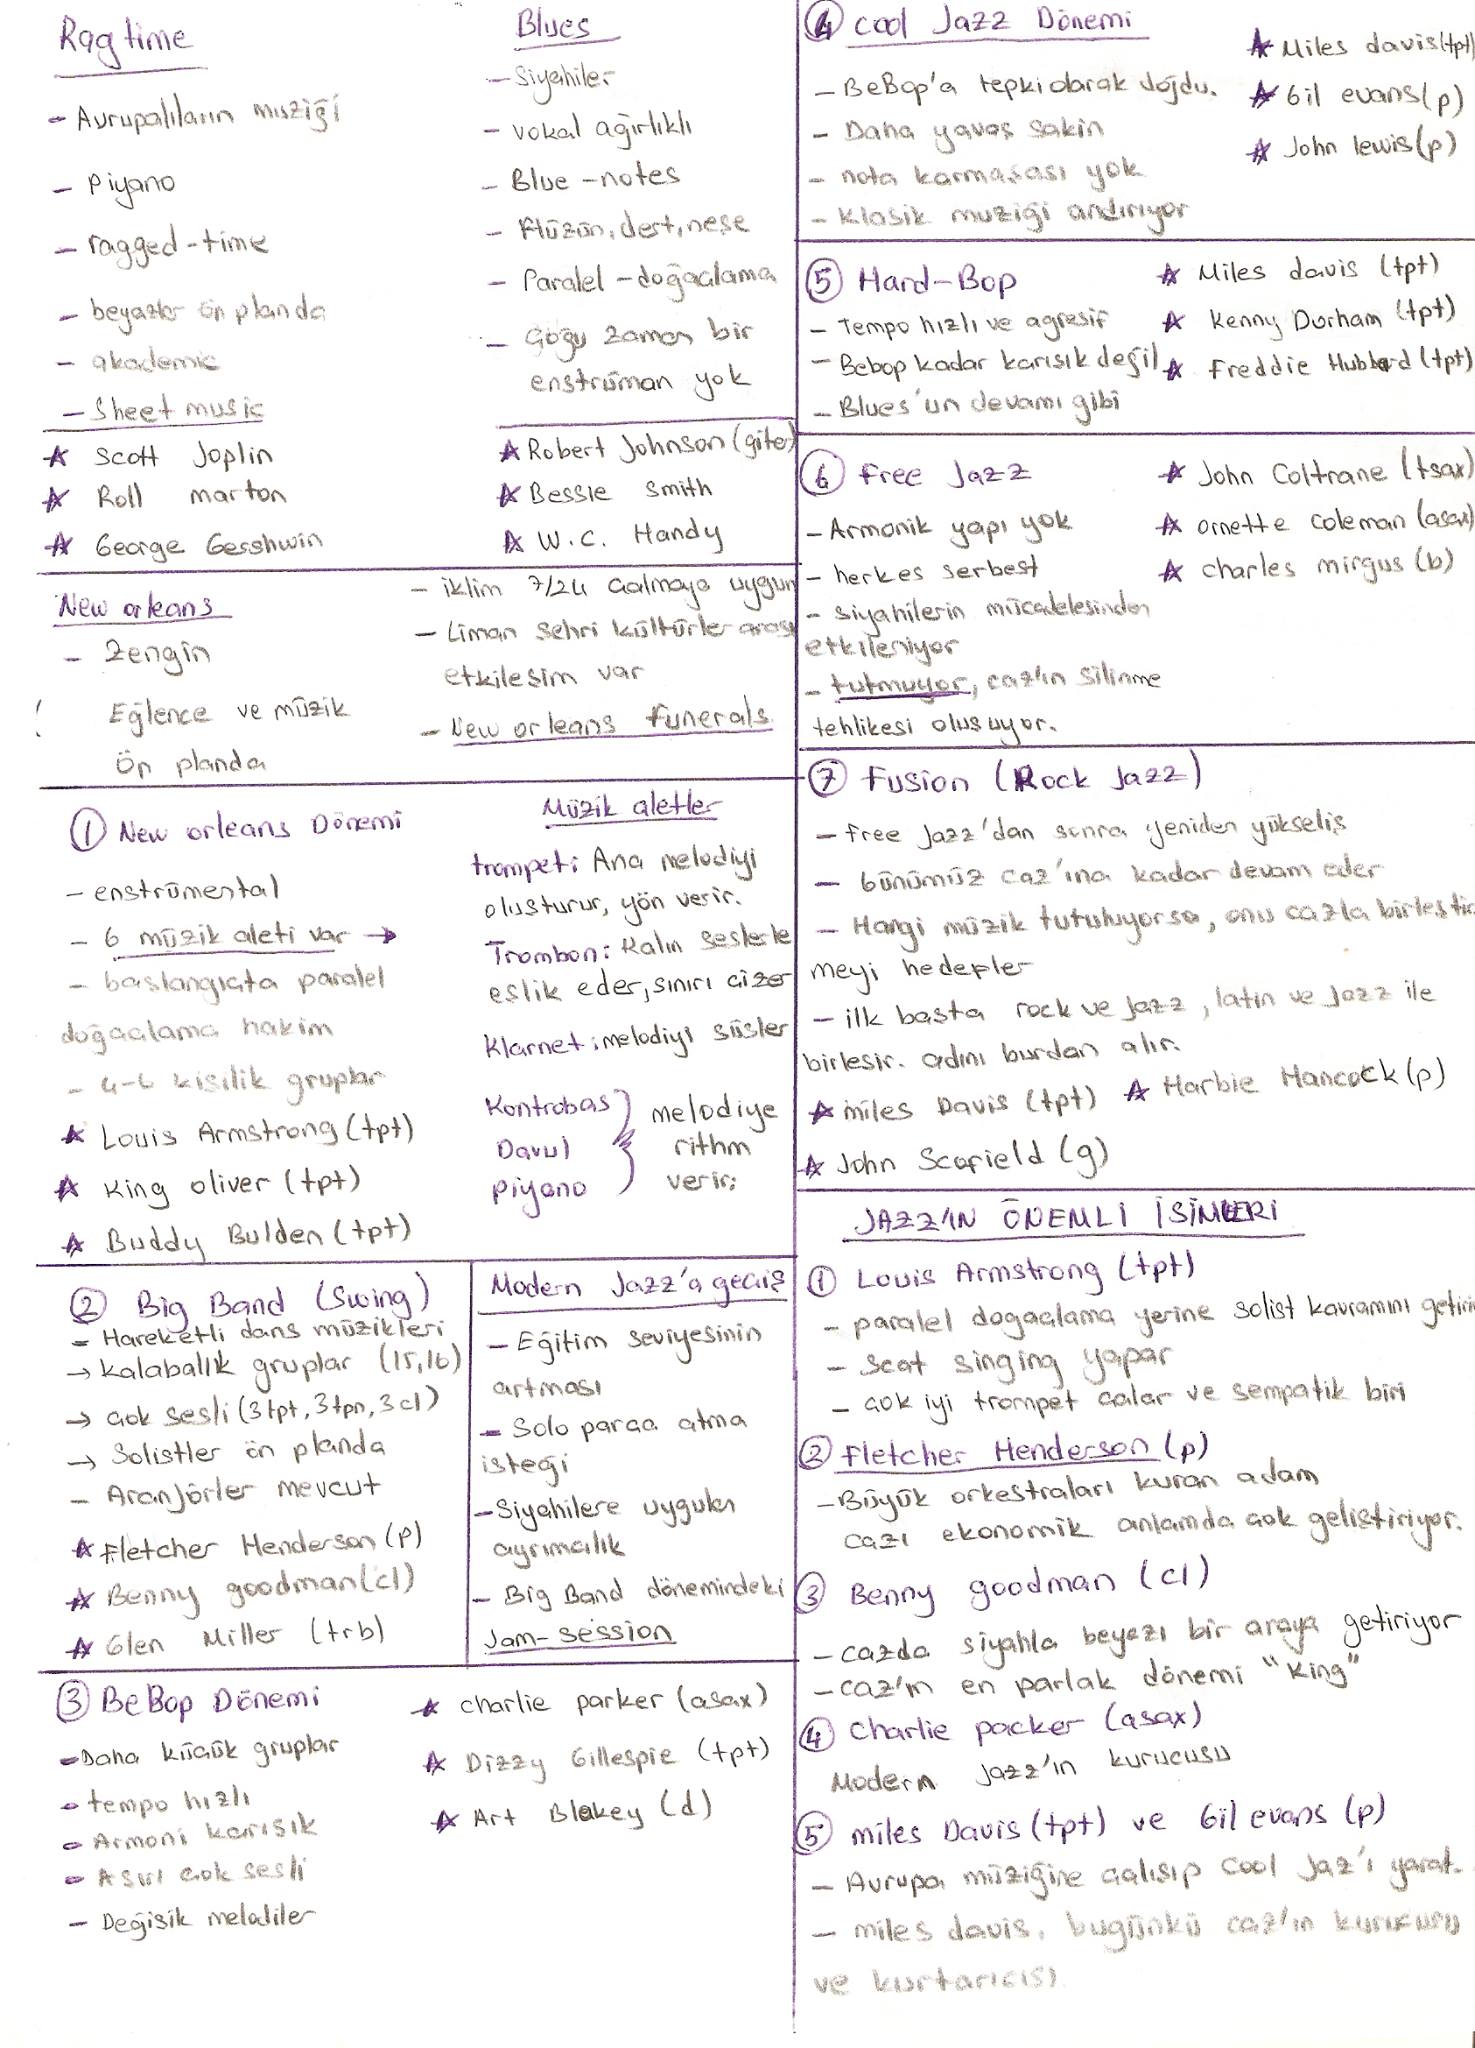 Ragtime
- Avrupalıların müziği
- Piyano
- ragged-time
- beyazlar ön planda
- akademic
- Sheet music
Scott Joplin
Roll marton
George Gershwin
Blues
- Siyahiler
- vokal ağırlıklı
- Blue-notes
- Hüzün, dert, neşe
- Paralel-doğaçlama
- Çoğu zaman bir
enstrüman yok
Robert Johnson (gitar)
Bessie smith
W.C. Handy
New orleans
- Zengin
Eğlence ve müzik
Ön planda
- iklim 7/24 çalmaya uygun
- Liman şehri kültürler arası
etkileşim var
- New orleans funerals
① New orleans Dönemi
- enstrümental
- 6 müzik aleti var →
- başlangıçta paralel
doğaçlama hakim
- 4-6 kişilik gruplar
Louis Armstrong (tpt)
King oliver (tpt)
Buddy Bulden (tpt)
Müzik aletler
trompet: Ana melodiyi
oluşturur, yön verir.
Trombon: Kalın seslerle
eşlik eder, sınırı çizer
Klarnet: melodiyi süsler
Kontrobas
Davul
Piyano
melodiye
rithm
verir:
② Big Band (Swing)
- Hareketli dans müzikleri
→ kalabalık gruplar (15,16)
→ çok sesli (3tpt, 3tpn, 3cl)
→ Solistler ön planda
- Aranjörler mevcut
Fletcher Henderson (p)
Benny goodman (cl)
Glen Miller (trb)
Modern Jazz'a geçiş
- Eğitim seviyesinin
artması
- Solo parça atma
isteği
- Siyahilere uygulan
ayrımcılık
- Big Band dönemindeki
Jam-session
③ BeBop Dönemi
- Daha küçük gruplar
- tempo hızlı
- Armoni karışık
- Aşırı çok sesli
- Değişik melodiler
charlie parker (asax)
Dizzy Gillespie (tpt)
Art Blakey (d)
④ cool Jazz Dönemi
- BeBop'a tepki olarak doğdu.
- Daha yavaş sakin
- nota karmaşası yok
- Klasik müziği andırıyor
Miles davis (tpt)
Gil evans (p)
John lewis (p)
⑤ Hard-Bop
- Tempo hızlı ve agresif
- Bebop kadar karışık değil
- Blues'un devamı gibi
Miles davis (tpt)
Kenny Dorham (tpt)
Freddie Hubbard (tpt)
⑥ Free Jazz
- Armonik yapı yok
- herkes serbest
- siyahilerin mücadelesinden
etkileniyor
- tutmuyor, caz'ın silinme
tehlikesi oluşuyor.
John Coltrane (tsax)
ornette coleman (asax)
charles mingus (b)
⑦ Fusion (Rock Jazz)
- free Jazz'dan sonra yeniden yükseliş
- Günümüz caz'ına kadar devam eder
- Hangi müzik tutuluyorsa, onu cazla birleştir
meyi hedefler
- ilk başta rock ve jazz, latin ve jazz ile
birleşir. adını burdan alır.
miles Davis (tpt)
Harbie Hancock (p)
John Scofield (g)
JAZZ'IN ÖNEMLİ İSİMLERİ
① Louis Armstrong (tpt)
- paralel doğaçlama yerine solist kavramını getirir
- Scat singing yapar
- çok iyi trompet çalar ve sempatik biri
② fletcher Henderson (p)
- Büyük orkestraları kuran adam
cazı ekonomik anlamda çok geliştiriyor.
③ Benny goodman (cl)
- cazda siyahla beyazı bir araya getiriyor
- caz'ın en parlak dönemi "King"
④ charlie packer (asax)
Modern jazz'ın kurucusu
⑤ miles Davis (tpt) ve Gil evans (p)
- Avrupa müziğine çalışıp cool Jaz'ı yarat.
- miles davis, bugünkü caz'ın kurucusu
ve kurtarıcısı